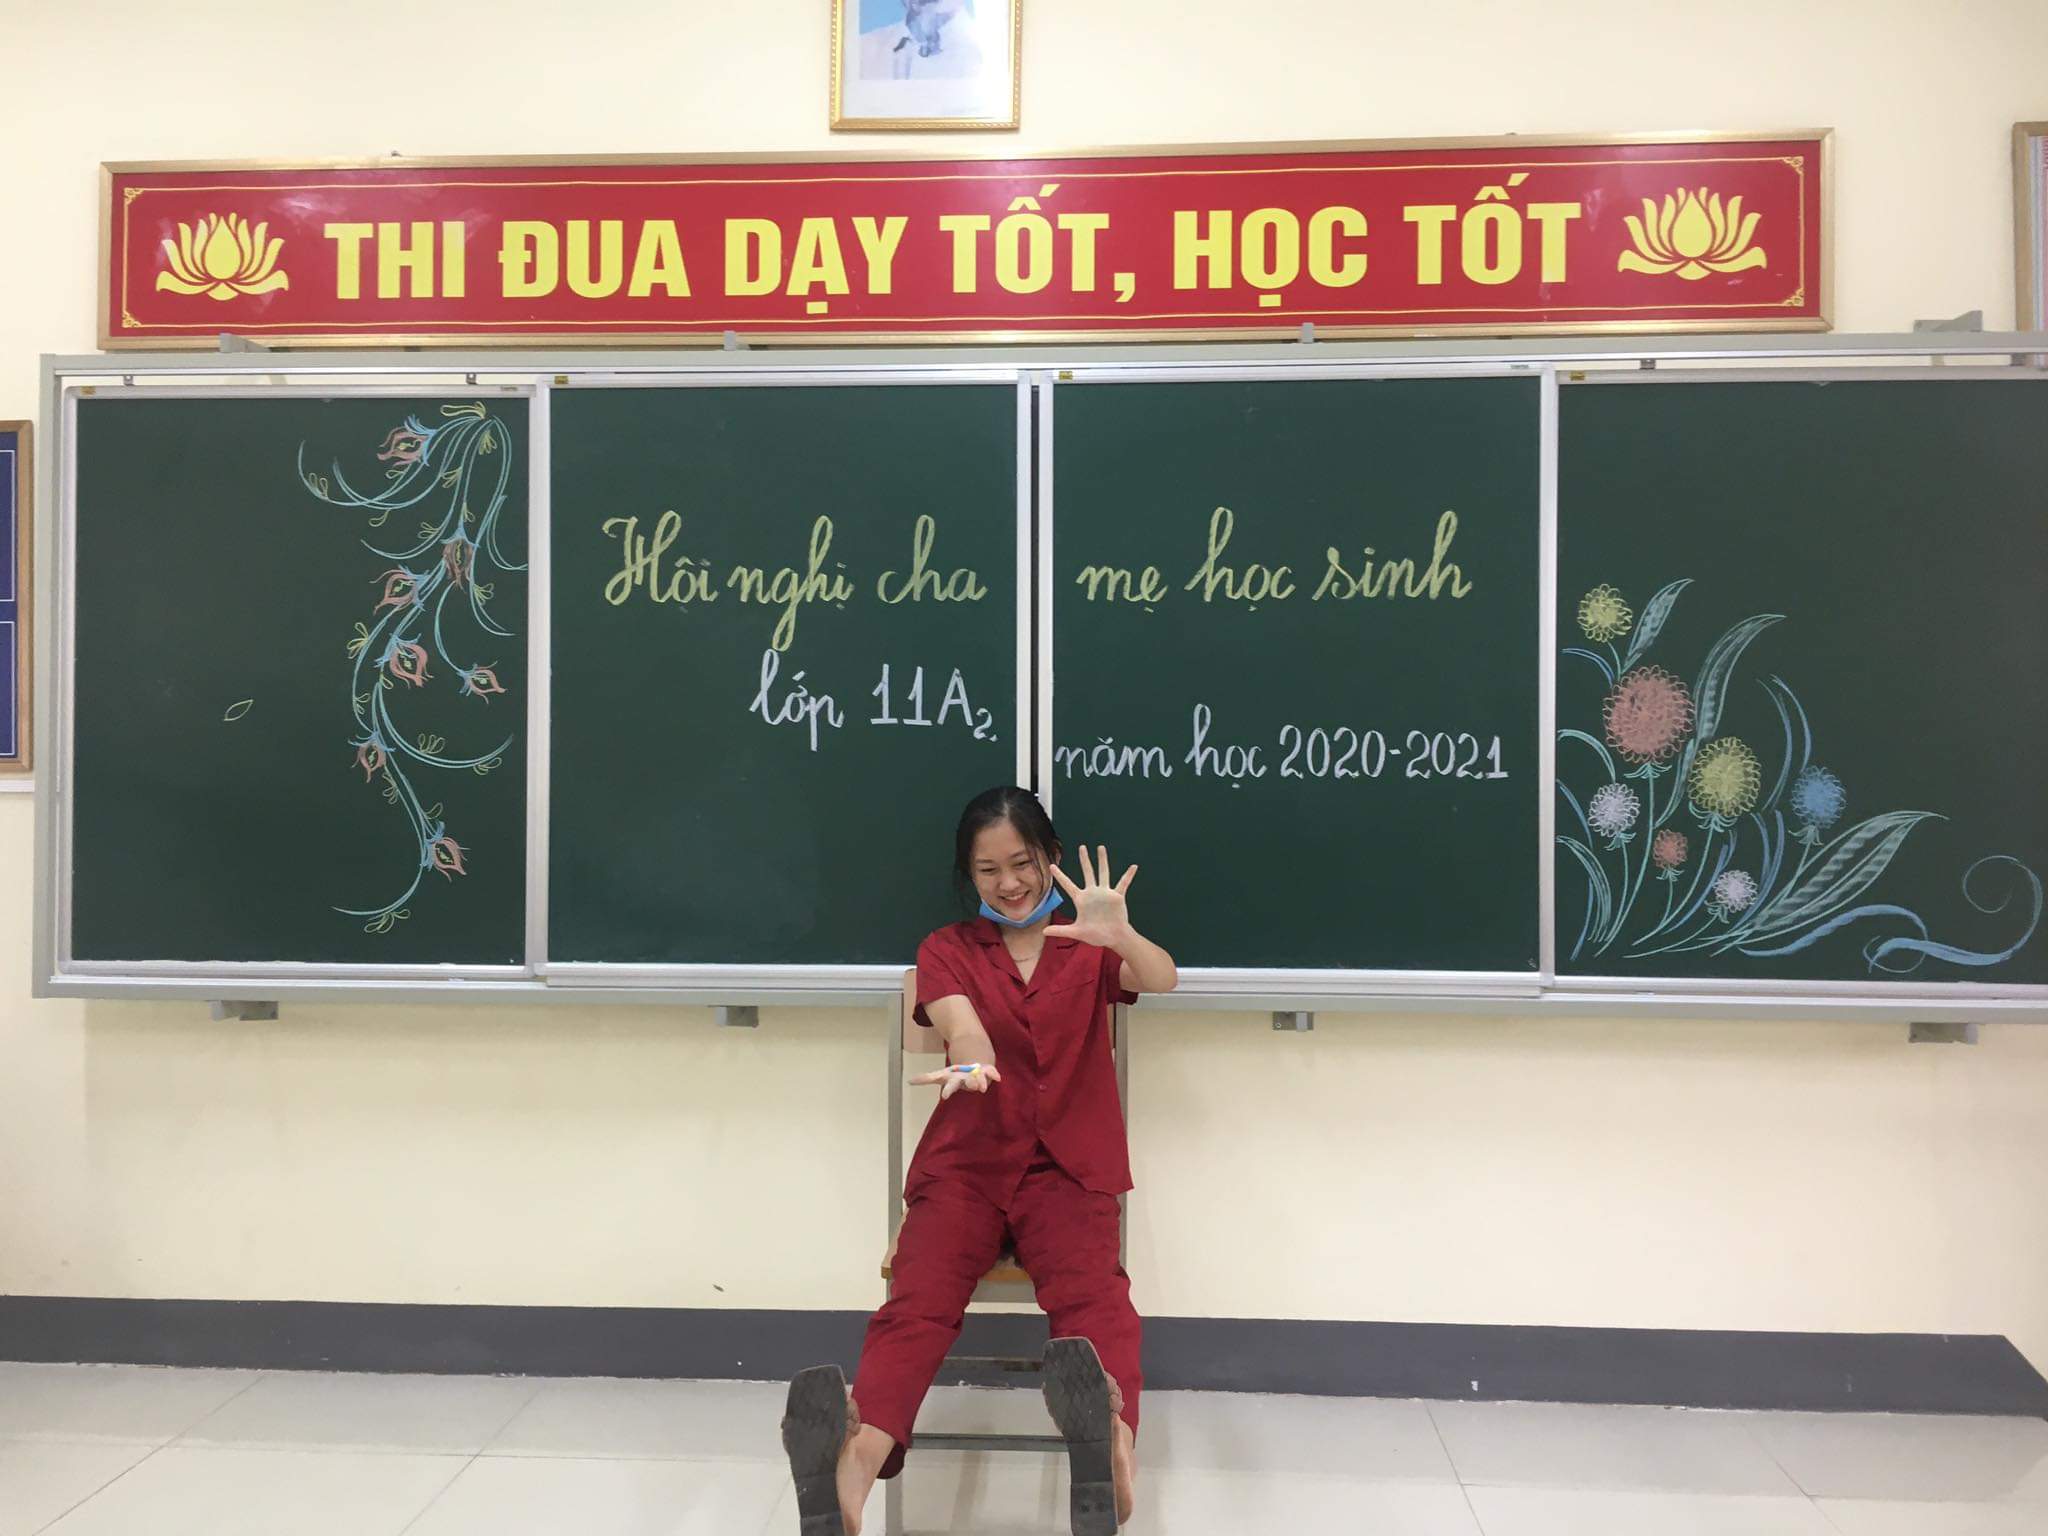 THI ĐUA DẠY TỐT, HỌC TỐT
Hội nghị cha mẹ học sinh
lớp 11A2 năm học 2020-2021